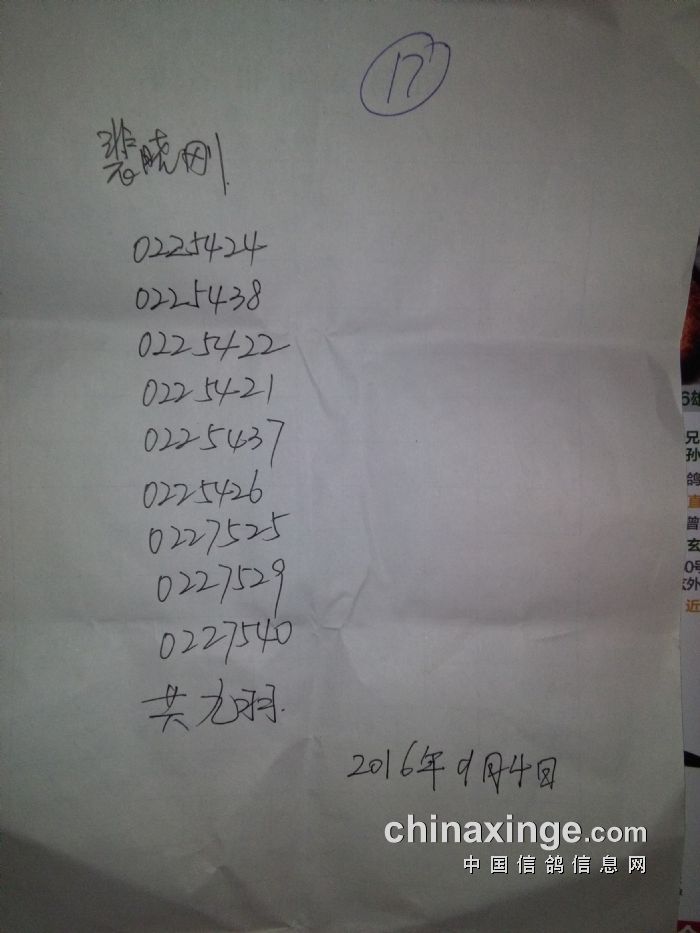 17
裴晓刚
0225424
0225438
0225422
0225421
0225437
0225426
0227525
0227529
0227540
共九羽.
2016年9月4日
6雄
兄
孙
鸽
直
普
玄
0号
玄外
近
chinaxinge.com
中国信鸽信息网